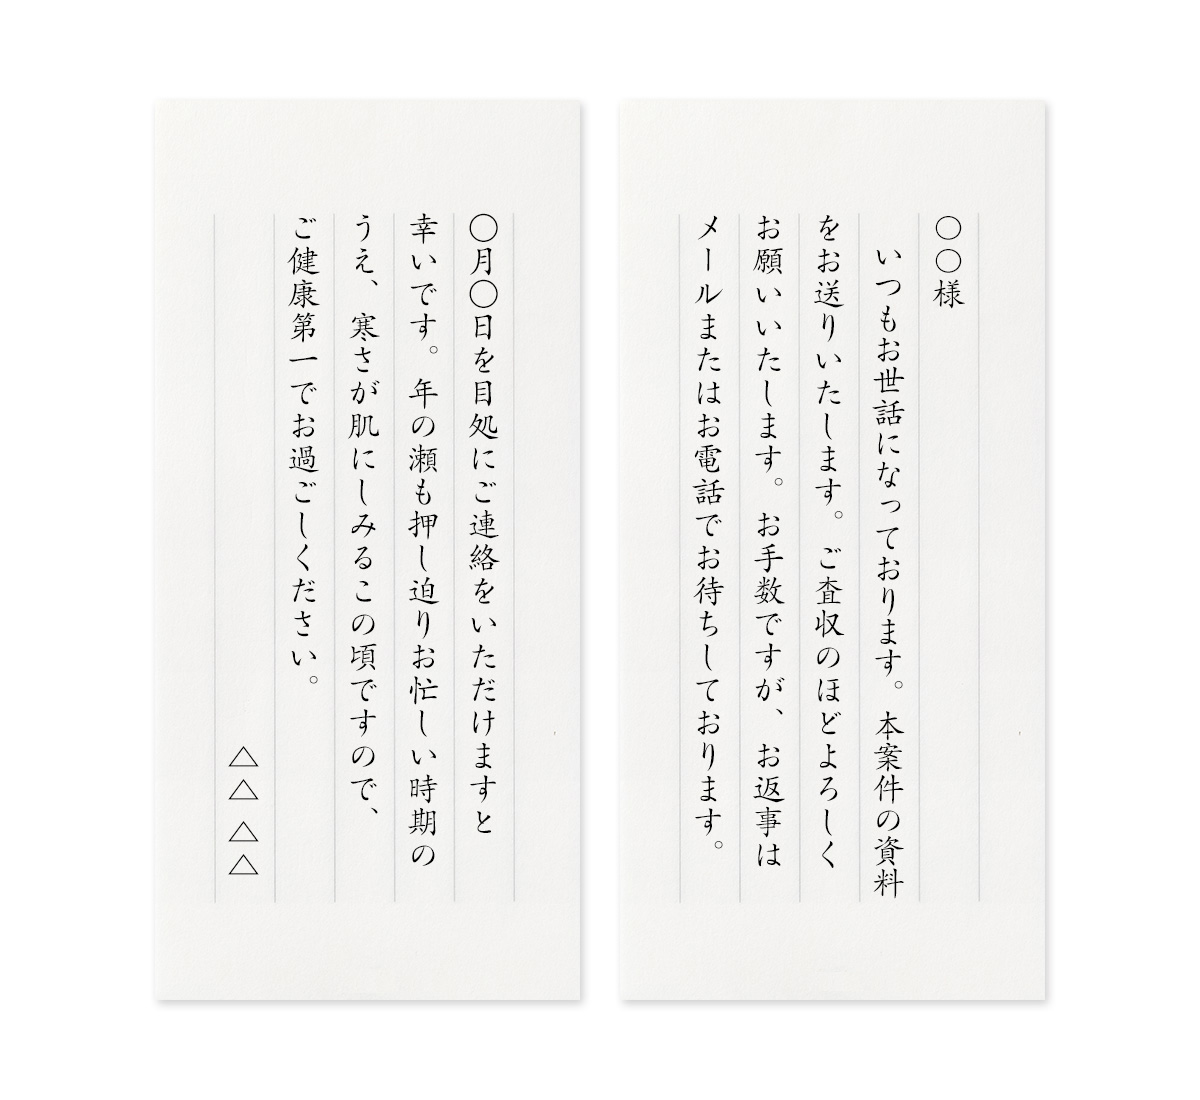 〇〇様
いつもお世話になっております。本案件の資料
をお送りいたします。ご査収のほどよろしく
お願いいたします。お手数ですが、お返事は
メールまたはお電話でお待ちしております。
〇月〇日を目処にご連絡をいただけますと
幸いです。年の瀬も押し迫りお忙しい時期の
うえ、寒さが肌にしみるこの頃ですので、
ご健康第一でお過ごしください。
△△△△